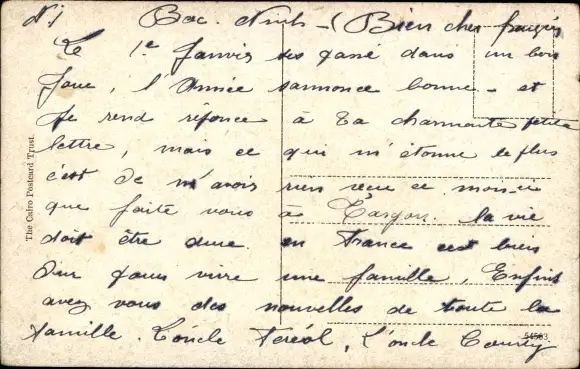 N°1 Bac. Ninh - (Bien chers
Le 1e Janvier ses passé dans un bon
Jour, l'année sannonce bonne - et
Je rend réponce à ta charmante petite
lettre, mais ce qui m'étonne le plus
c'est de n'avoir rien reçu ce mois-ci
que faite vous à Targon. la vie
doit être dure. en France c'est bien
Dur pour vivre une famille, Enfin
avez vous des nouvelles de toute la
famille. L'oncle L'oncle
The Cairo Postcard Trust.